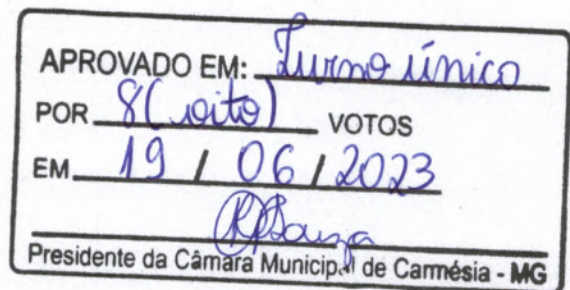 APROVADO EM: Turno único
POR 8 (oito) VOTOS
EM 19 / 06 / 2023
Presidente da Câmara Municipal de Carmésia - MG